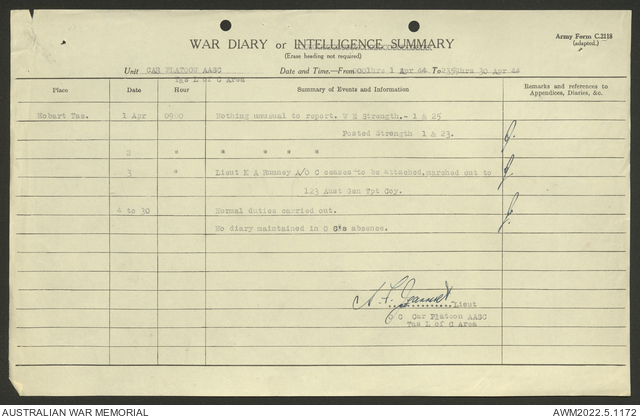 WAR DIARY or INTELLIGENCE SUMMARY
Army Form C.2118
(adapted.)
(Erase heading not required)
Unit CAR PLATOON AASC Date and Time.—From 0001hrs 1 Apr 44 To 2359hrs 30 Apr 44
Tas L of C Area
Place Date Hour Summary of Events and Information Remarks and references to Appendices, Diaries, &c.
Hobart Tas. 1 Apr 0900 Nothing unusual to report. W E Strength.- 1 & 25
Posted Strength 1 & 23.
2 " " " " "
3 " Lieut A/O C ceases to be attached, marched out to
123 Aust Gen Tpt Coy.
4 to 30 Normal duties carried out.
No diary maintained in O C's absence.
Lieut
O C Car Platoon AASC
Tas L of C Area
AUSTRALIAN WAR MEMORIAL
AWM2022.5.1172